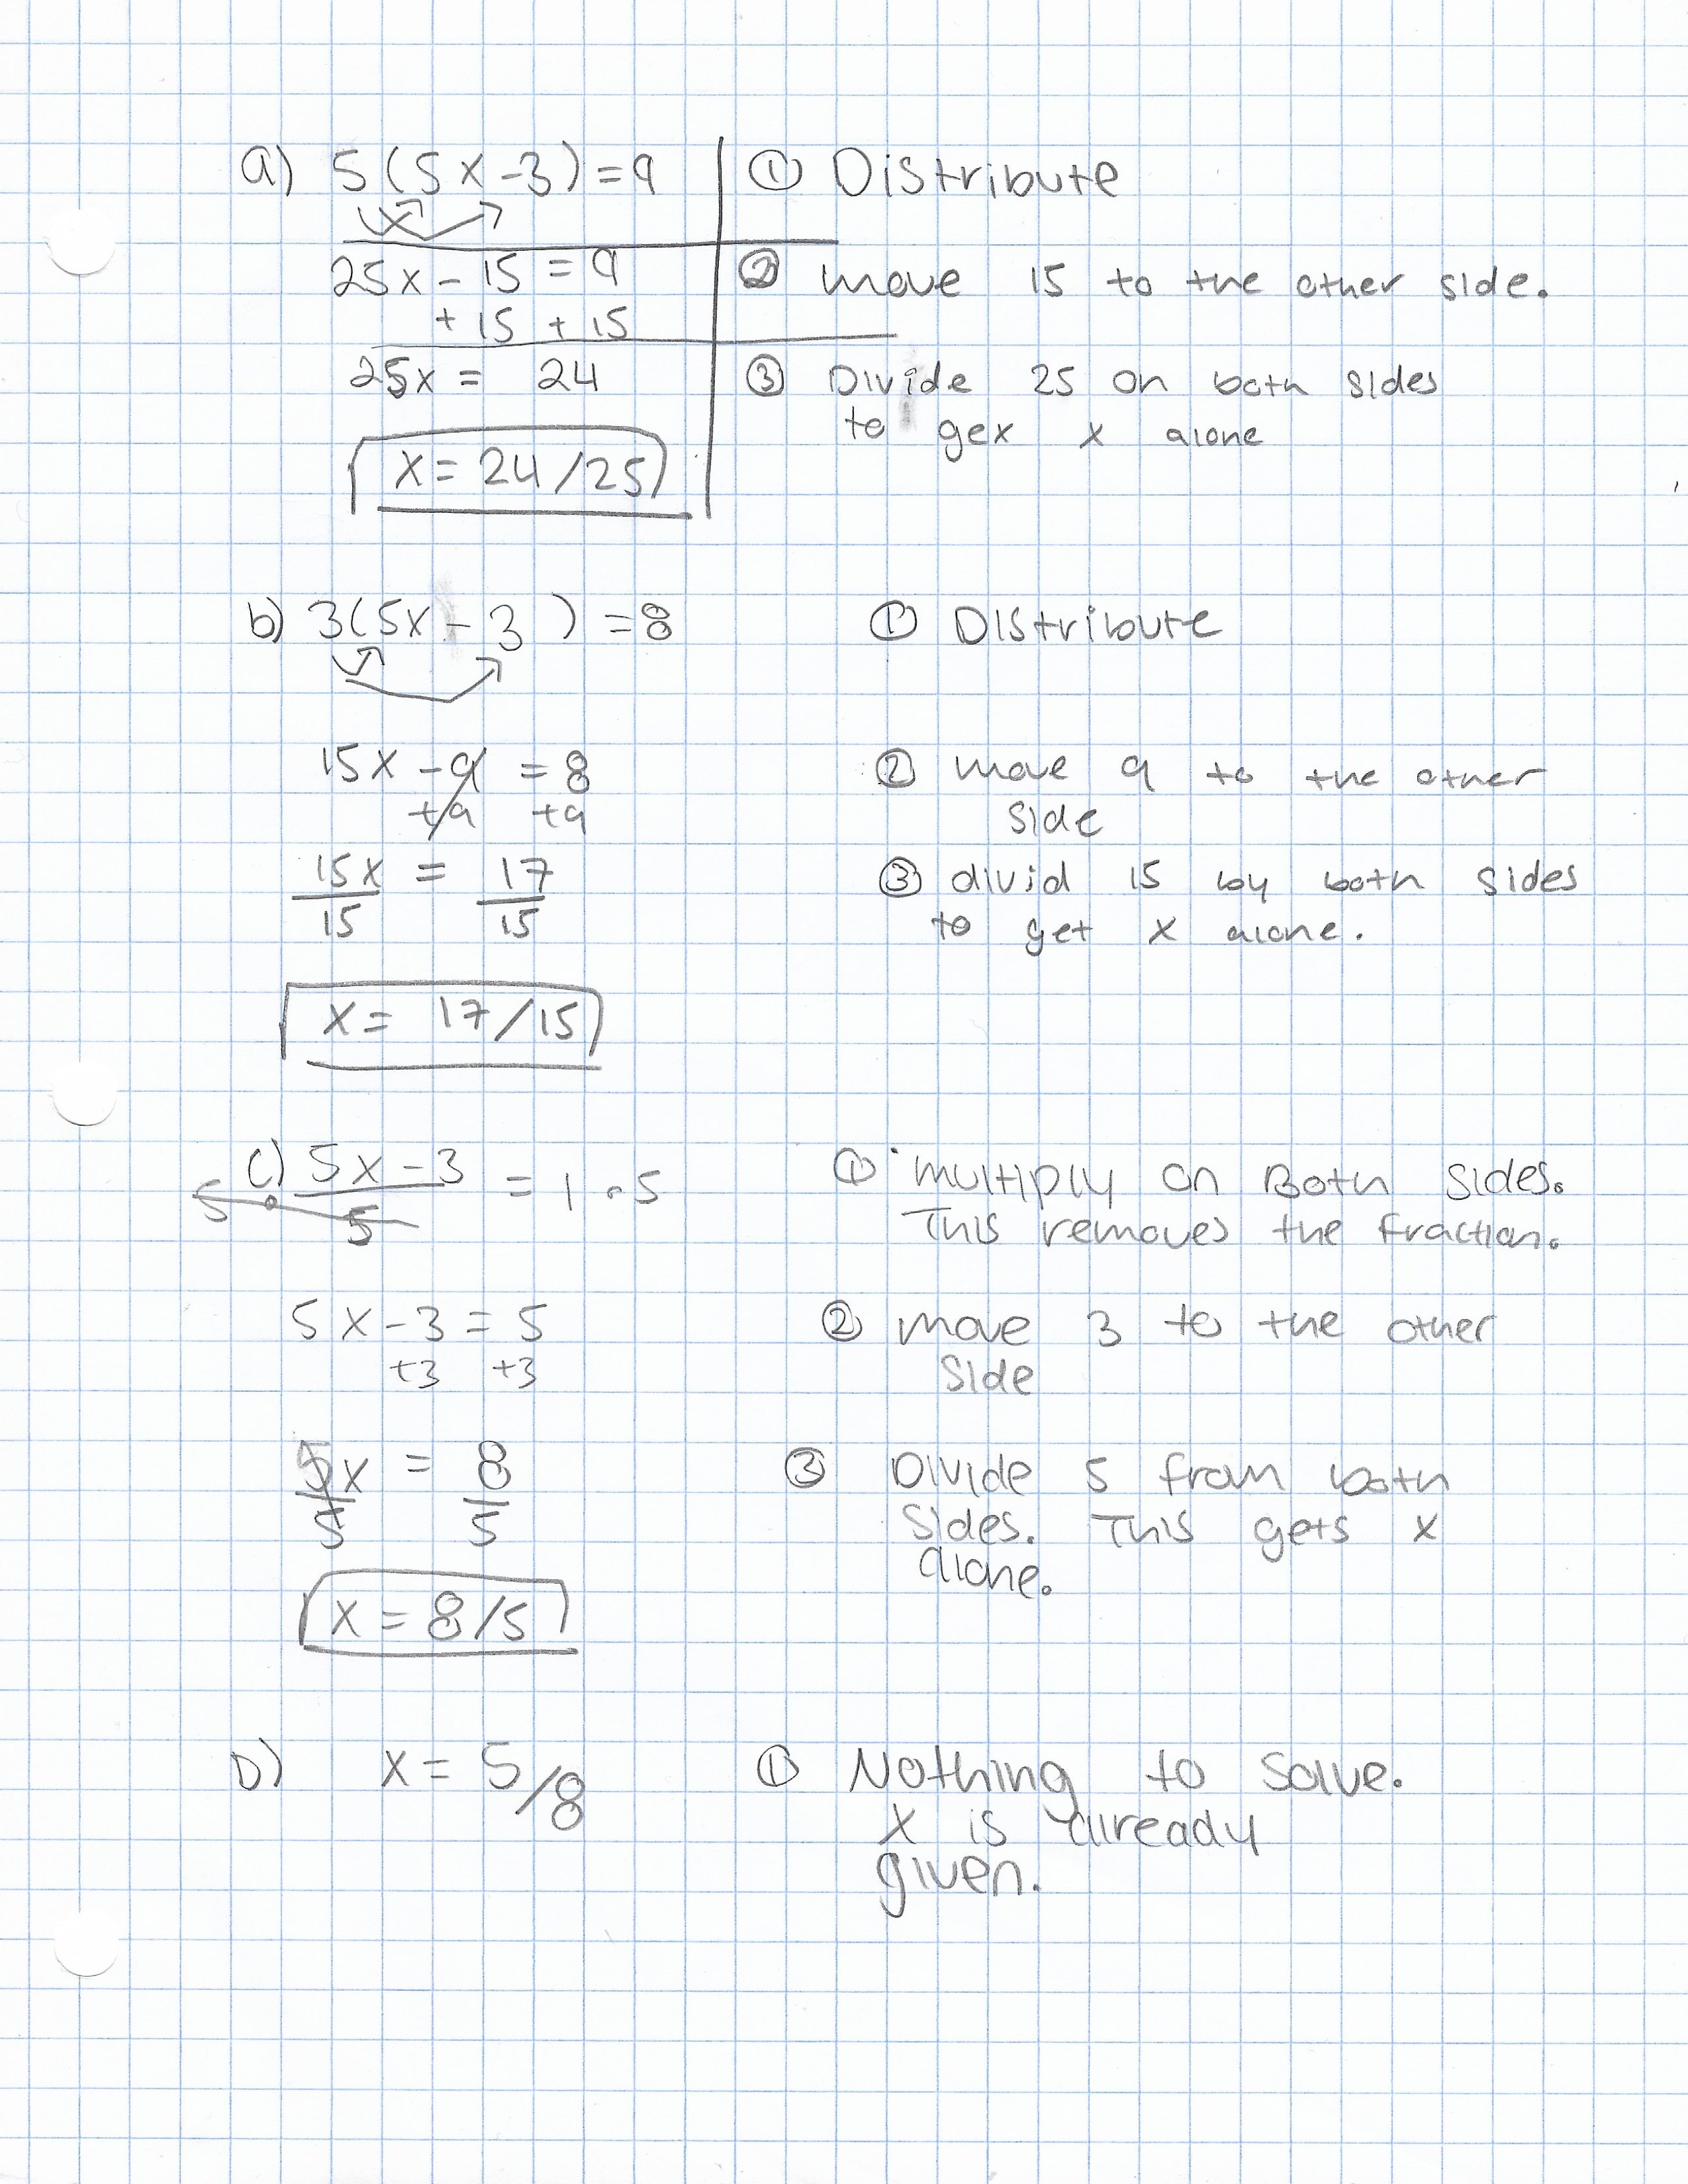 a) 5(5x-3)=9 ① Distribute
25x - 15 = 9 ② move 15 to the other side.
+ 15 + 15
25x = 24 ③ Divide 25 on both sides
to gex x alone
x = 24/25
b) 3(5x - 3) = 8 ① Distribute
15x - 9 = 8 ② move 9 to the other
+9 +9 side
15x = 17 ③ divid 15 by both sides
15 15 to get x alone.
x = 17/15
c) 5x - 3 = 1 · 5 ① multiply on Both sides.
5 · 5 This removes the fraction.
5x - 3 = 5 ② move 3 to the other
+3 +3 side
5x = 8 ③ Divide 5 from both
5 5 sides. This gets x
alone.
x = 8/5
D) x = 5/8 ① Nothing to solve.
x is already
given.